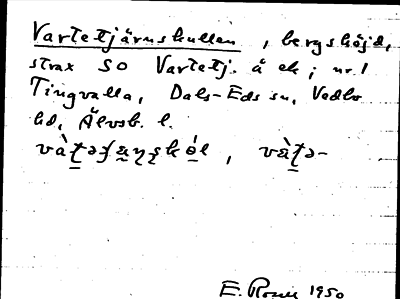 Vartetjärnskullen, bergshöjd,
strax SO Vartetj. å ek; nr 1
Tingvalla, Dals-Eds sn, Vedbo
hd, Älvsb. l.
E. 1950